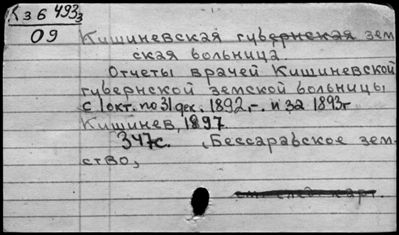 К 36 4933
09
Кишиневская губернская зем-
ская больница.
Отчеты врачей Кишиневской
губернской земской больницы
с 1 окт. по 31 дек. 1892 г. и за 1893 г
Кишинев, 1897.
347с. (Бессарабское зем-
ство)